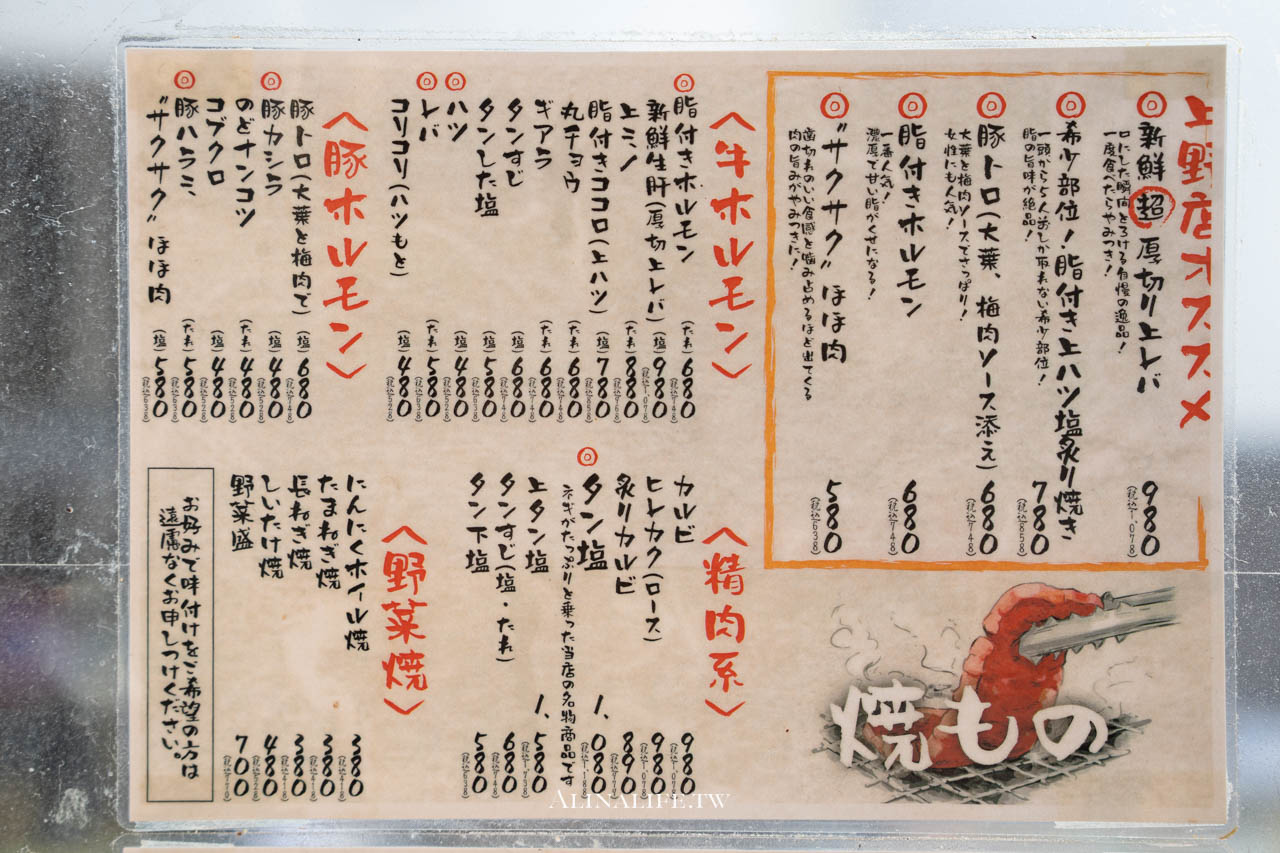 上野店オススメ
◎新鮮超厚切り上レバ 980(税込1,078)
口にした瞬間とろける自慢の逸品!
一度食べたらやみつき!
◎希少部位!脂付き上ハツ塩炙り焼き 780(税込858)
一頭から5人前しか取れない希少部位!
脂の旨味が絶品!
◎豚トロ(大葉、梅肉ソース添え) 680(税込748)
大葉と梅肉ソースでさっぱり!
女性にも人気!
◎脂付きホルモン 680(税込748)
一番人気!
濃厚で甘い脂がくせになる!
◎“サクサク”ほほ肉 580(税込638)
歯切れのいい食感と噛み占めるほど出てくる
肉の旨みがやみつきに!
焼もの
〈牛ホルモン〉
◎脂付きホルモン(たれ)680(税込748)
新鮮生肝(厚切上レバ)(塩)980(税込1,078)
上ミノ(たれ)880(税込968)
脂付きココロ(上ハツ)(塩)780(税込858)
丸チョウ(たれ)680(税込748)
ギアラ(たれ)680(税込748)
タンすじ(塩)680(税込748)
タンした塩(塩)580(税込638)
◎ハツ(塩)480(税込528)
◎レバ(たれ)580(税込638)
コリコリ(ハツもと)(塩)480(税込528)
〈豚ホルモン〉
豚トロ(大葉と梅肉で)(塩)680(税込748)
◎豚カシラ(塩)480(税込528)
のどナンコツ(たれ)480(税込528)
コブクロ(塩)480(税込528)
◎豚ハラミ(たれ)580(税込638)
“サクサク”ほほ肉(塩)580(税込638)
〈精肉系〉
カルビ 980(税込1,078)
ヒレカク(ロース) 980(税込1,078)
炙りカルビ 890(税込979)
◎タン塩 1,080(税込1,188)
ネギがたっぷりと乗った当店の名物商品です
上タン塩 1,580(税込1,738)
タンすじ(塩・たれ) 680(税込748)
タン下塩 580(税込638)
〈野菜焼〉
にんにくホイル焼 380(税込418)
たまねぎ焼 380(税込418)
長ねぎ焼 380(税込418)
しいたけ焼 480(税込528)
野菜盛 700(税込770)
お好みで味付けをご希望の方は
遠慮なくお申しつけください。
ALINALIFE.TW